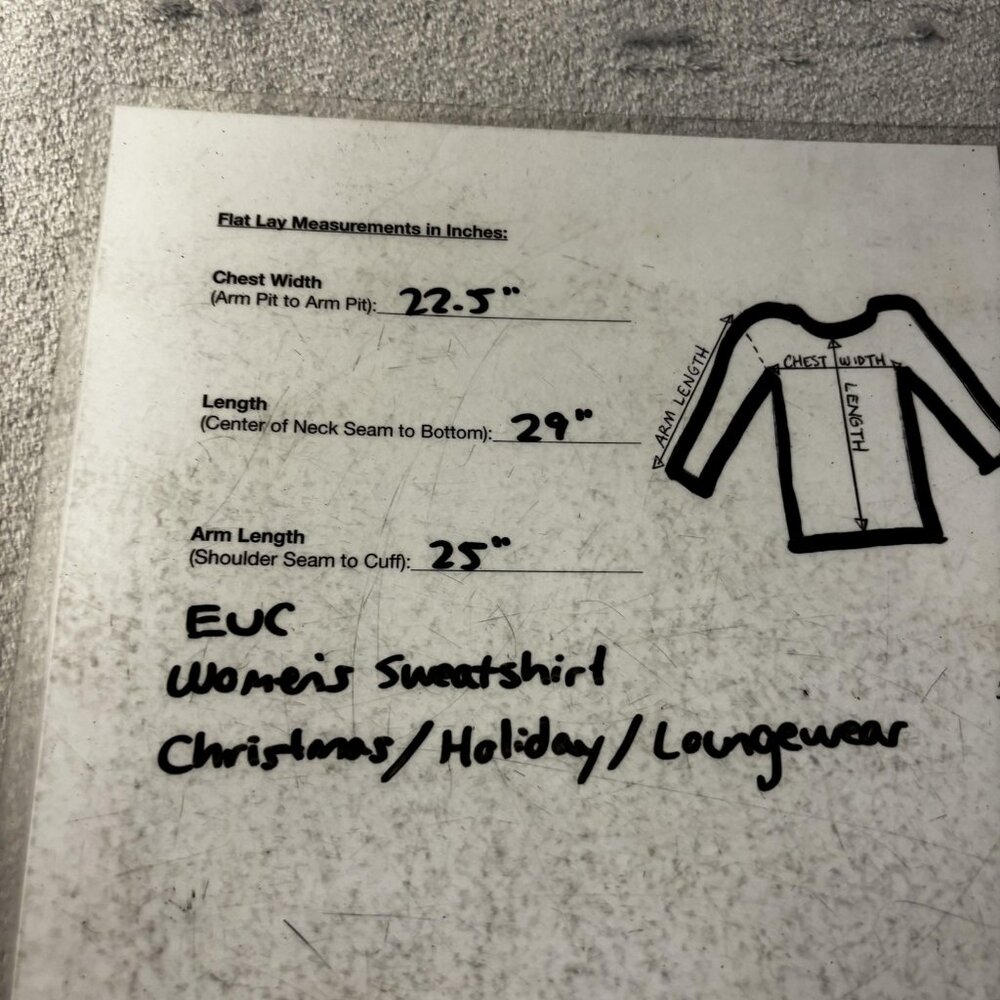 Flat Lay Measurements in Inches:
Chest Width
(Arm Pit to Arm Pit): 22.5"
Length
(Center of Neck Seam to Bottom): 29"
Arm Length
(Shoulder Seam to Cuff): 25"
EUC
Women's Sweatshirt
Christmas/Holiday/Loungewear
ARM LENGTH
CHEST WIDTH
LENGTH